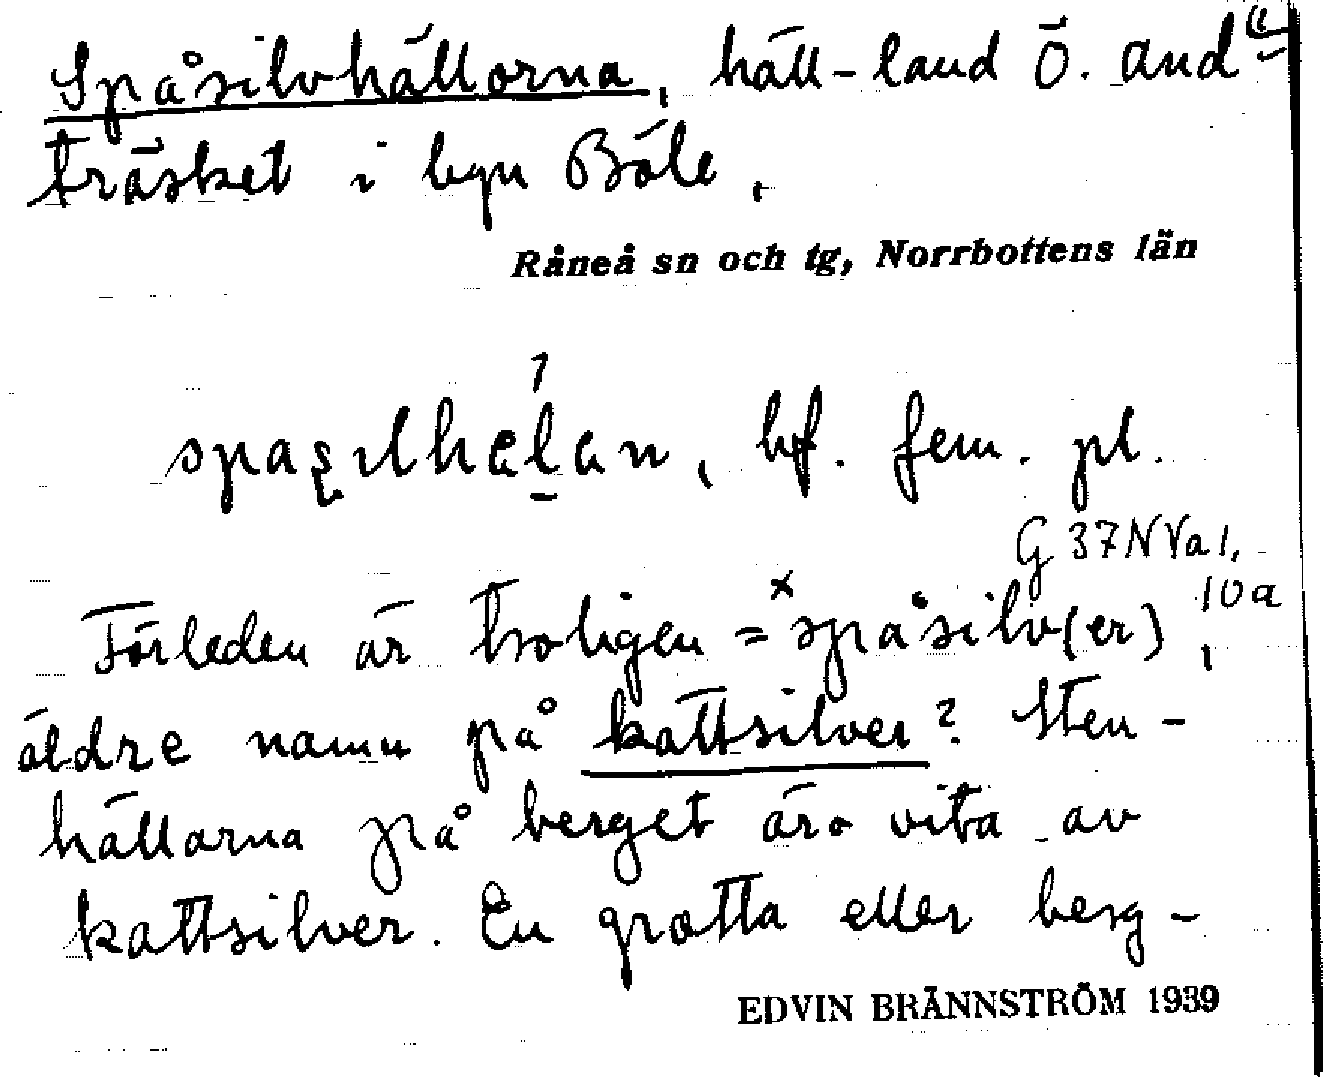 Spåsilvhällorna, häll-land Ö. And=
träsket i byn Böle.
Råneå sn och tg, Norrbottens län
bf. fem. pl.
G 37 NVa 1,
10a
Förleden är troligen = ×spåsilv(er),
äldre namn på kattsilver? Sten-
hällarna på berget äro vita av
kattsilver. En grotta eller berg-
EDVIN BRÄNNSTRÖM 1939